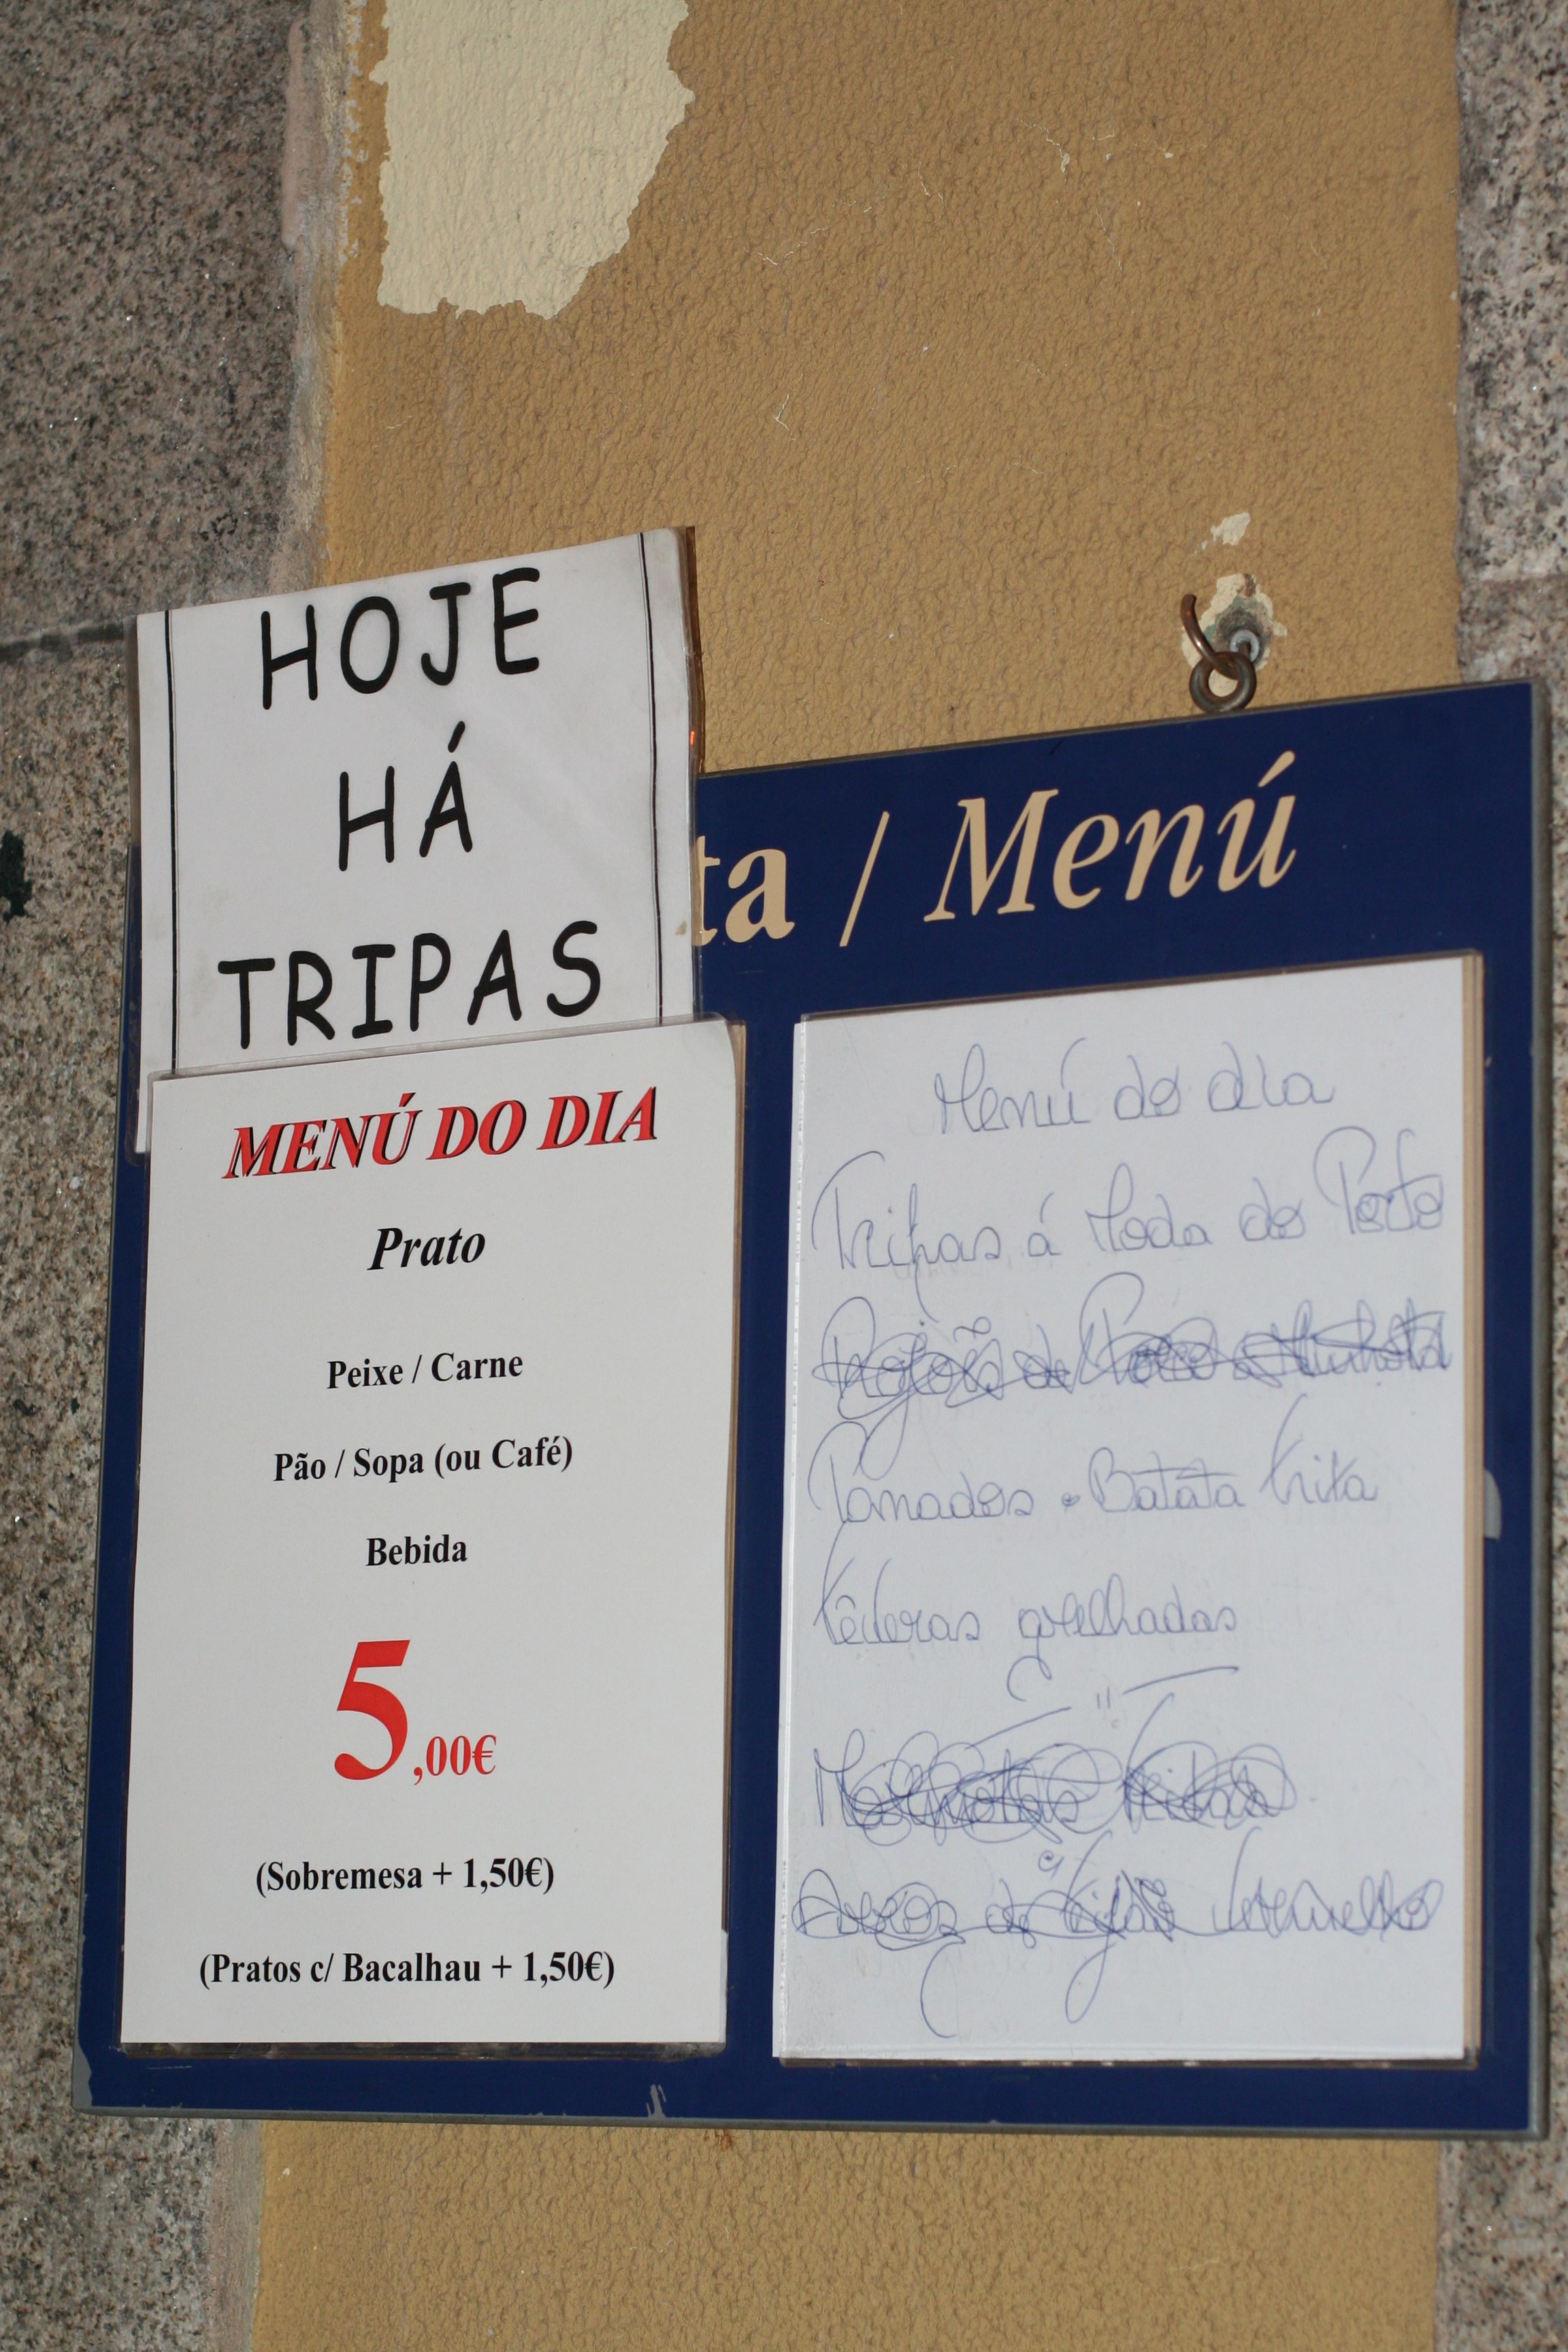 HOJE
HÁ
TRIPAS
ta / Menú
MENÚ DO DIA
Prato
Peixe / Carne
Pão / Sopa (ou Café)
Bebida
5,00€
(Sobremesa + 1,50€)
(Pratos c/ Bacalhau + 1,50€)
Menú do dia
Tripas á Moda do Porto
Rojões de Porco a Minhota
Panados e Batata frita
fêveras grelhadas
Arroz de feijão vermelho